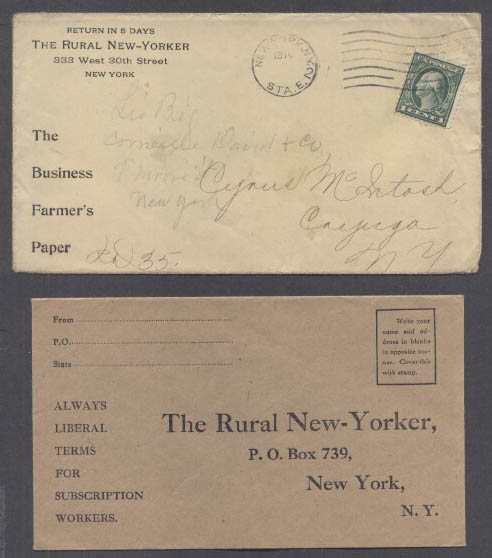 RETURN IN 5 DAYS
THE RURAL NEW-YORKER
333 West 30th Street
NEW YORK
NEW YORK, N.Y.
191
STA. E.
U.S. POSTAGE
1 CENT 1
The
Business
Farmer's
Paper
& Co
New York
Cyrus McIntosh
Cayuga
N Y
35.
From
P.O.
State
Write your
name and ad-
dress in blanks
in opposite cor-
ner. Cover this
with stamp.
ALWAYS
LIBERAL
TERMS
FOR
SUBSCRIPTION
WORKERS.
The Rural New-Yorker,
P. O. Box 739,
New York,
N. Y.